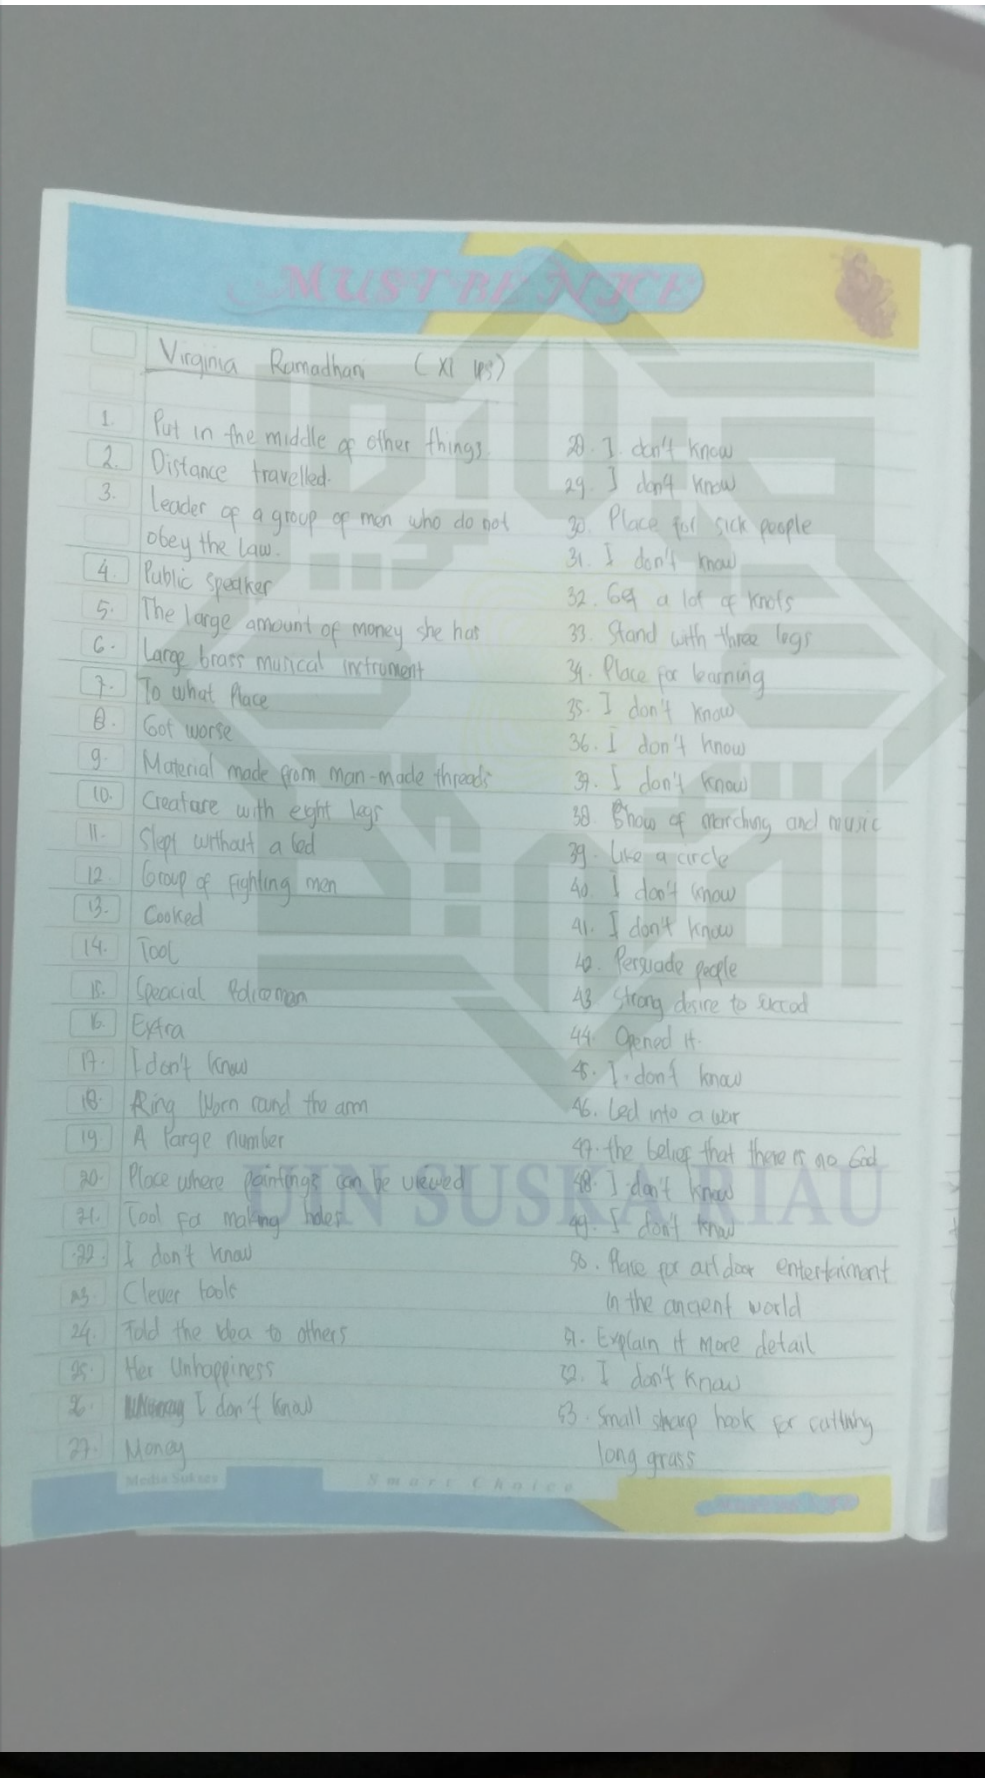 MUST BE NICE
Virginia Ramadhani (XI IPS)
1. Put in the middle of other things.
2. Distance travelled.
3. Leader of a group of men who do not
obey the law.
4. Public speaker
5. The large amount of money she has
6. Large brass musical instrument
7. To what Place
8. Got worse
9. Material made from man-made threads
10. Creature with eight legs
11. Slept without a bed
12. Group of fighting men
13. Cooked
14. Tool
15. Speacial Policeman
16. Extra
17. I don't know
18. Ring Worn round the arm
19. A large number
20. Place where paintings can be viewed
21. Tool for making holes
22. I don't know
23. Clever tools
24. Told the idea to others
25. Her Unhappiness
26. I don't know
27. Money
28. I don't know
29. I don't know
30. Place for sick people
31. I don't know
32. Get a lot of knots
33. Stand with three legs
34. Place for learning
35. I don't know
36. I don't know
37. I don't know
38. Show of marching and music
39. Like a circle
40. I don't know
41. I don't know
42. Persuade people
43. Strong desire to succed
44. Opened it.
45. I don't know
46. Led into a war
47. the belief that there is no God
48. I don't know
49. I don't know
50. Place for outdoor entertainment
in the ancient world
51. Explain it more detail
52. I don't know
53. Small sharp hook for cutting
long grass
UIN SUSKA RIAU
Media Sukses
Smart Choice